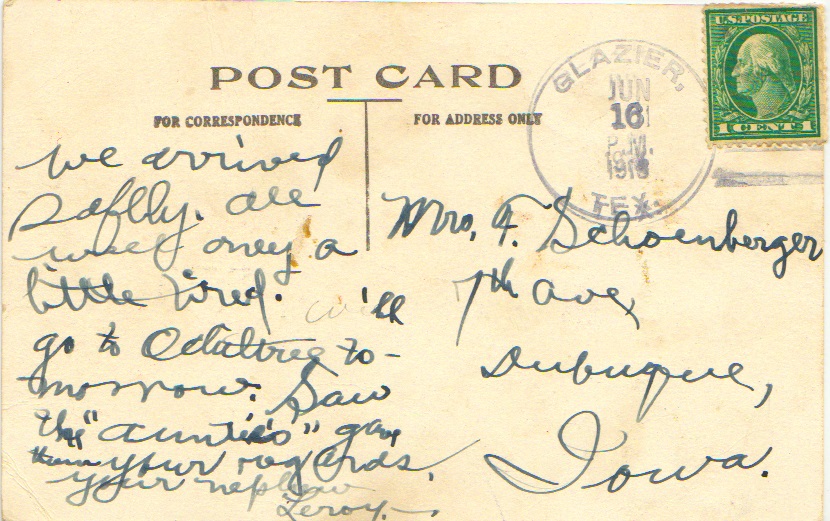 POST CARD
FOR CORRESPONDENCE
FOR ADDRESS ONLY
GLAZIER,
JUN
16
P.M.
TEX.
U.S. POSTAGE
1 CENT 1
We arrived
Saflly. all
well only a
little tired.
will
go to to-
morrow. Saw
the "aunties" gave
them your regards.
your nephew
Leroy.
Mrs, F. Schoenberger
7th Ave,
Dubuque,
Iowa.